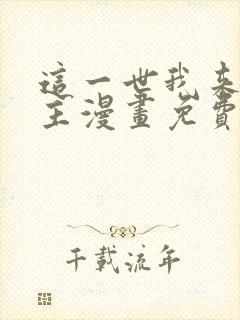 這一世我來
主漫畫免費
千載流年